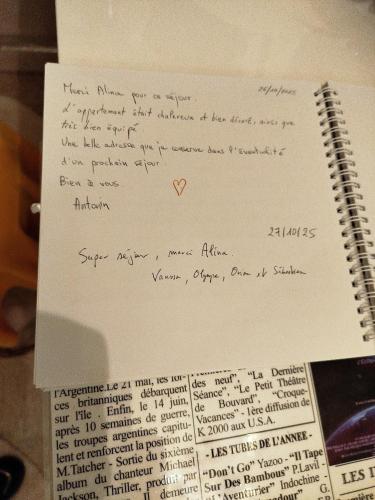 26/10/2025
Merci Alina pour ce séjour.
L'appartement était chaleureux et bien décoré, ainsi que
très bien équipé
Une belle adresse que je conserve dans l'éventualité
d'un prochain séjour.
Bien à vous.
Antonin
27/10/25
Super séjour, merci Alina.
Vanessa, Olympe, et Sébastien
l'Argentine. Le 21 mai, les for-
ces britanniques débarquent
sur l'île. Enfin, le 14 juin,
après 10 semaines de guerre,
les troupes argentines capitu-
lent et renforcent la position de
M.Tatcher - Sortie du sixième
album du chanteur Michael
Jackson, Thriller, produit par
Il demeure
des neuf", "La Dernière
Séance", "Le Petit Théâtre
de Bouvard", "Croque-
Vacances" - 1ère diffusion de
K 2000 aux U.S.A.
- LES TUBES DE L'ANNEE -
"Don't Go" Yazoo - "Il Tape
Sur Des Bambous" P.Lavil -
"L'Aventurier" Indochine -
LES D